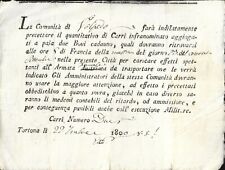 La Comunità di farà indilatamente
precettare il quantitativo di Carri infranominato aggiogati
a paia due Buoi cadauno, quali dovranno ritrovarsi
alle ore 8 di Francia della mattina del giorno
nella presente Città per caricare effetti spettanti
all'Armata da trasportare ove le verrà
indicato Gli Amministratori della stessa Comunità dovranno
usare la maggiore attenzione, ad effetto i precettati
obbediscano a quanto sovra, giacchè in caso diverso saranno
li medemi contabili del ritardo, ed ammissione, e per
conseguenza punibili anche coll'esecuzione Militare.
Carri, Numero Due
Tortona li 29 1800